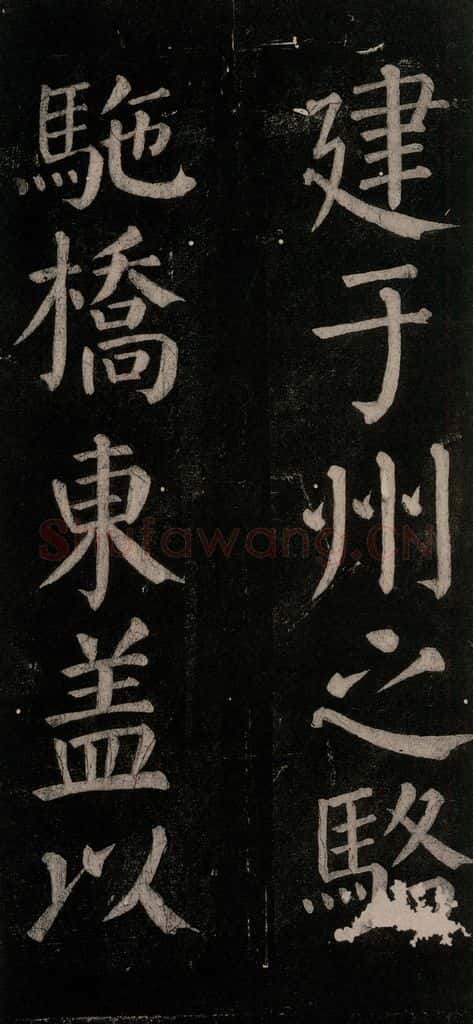 建于州之駱
駞橋東盖以
Shufawang.CN